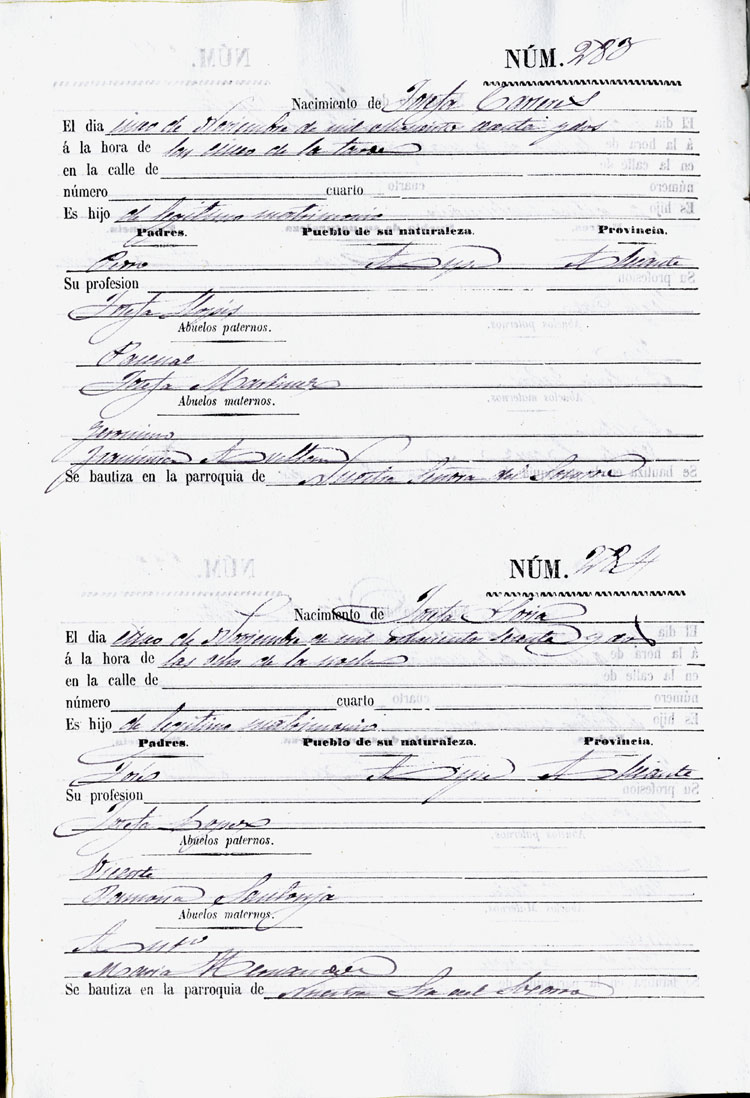 NÚM. 283
Nacimiento de Josefa Carreres
El dia cinco de Noviembre de mil ochociento secenta y dos
á la hora de las cinco de la tarde
en la calle de
número cuarto
Es hijo de legitimo matrimonio
Padres. Pueblo de su naturaleza. Provincia.
Pedro Aspe Alicante
Su profesion
Josefa
Abuelos paternos.
Pascual
Josefa Martinez
Abuelos maternos.
Geronimo
Se bautiza en la parroquia de Nuestra Señora del Socorro
NÚM. 284
Nacimiento de Josefa
El dia cinco de Noviembre de mil ochociento secenta y dos
á la hora de las ocho de la noche
en la calle de
número cuarto
Es hijo de legitimo matrimonio
Padres. Pueblo de su naturaleza. Provincia.
José Aspe Alicante
Su profesion
Josefa Lopez
Abuelos paternos.
Vicente
Ramona Santonja
Abuelos maternos.
Maria Hernandez
Se bautiza en la parroquia de Nuestra Sra del Socorro